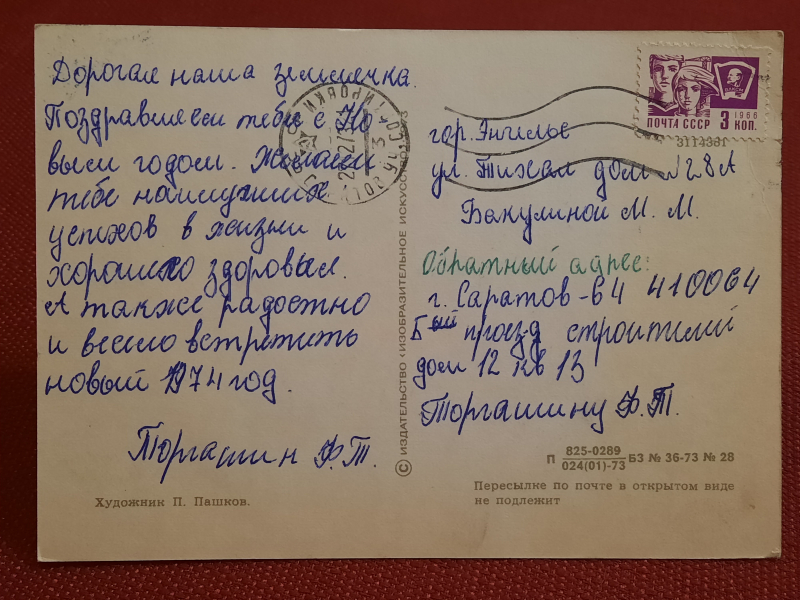 Дорогая наша землячка.
Поздравляем тебя с Но
вым годом. Желаем
тебе наилучших
успехов в жизни и
хорошего здоровья.
А также радостно
и весело встретить
новый 1974 год.
Торгашин Ф.Т.
Художник П. Пашков.
© ИЗДАТЕЛЬСТВО «ИЗОБРАЗИТЕЛЬНОЕ ИСКУССТВО».
ПОЧТА СССР 3 КОП.
1966
ВЛКСМ
3114381
гор. Энгильс
ул. Тихая дом №28А
Бакулиной М. М.
Обратный адрес:
г. Саратов-64 410064
5ый проезд строителей
дом 12 кв 13
Торгашину Ф.Т.
П 825-0289
024(01)-73 БЗ № 36-73 № 28
Пересылке по почте в открытом виде
не подлежит